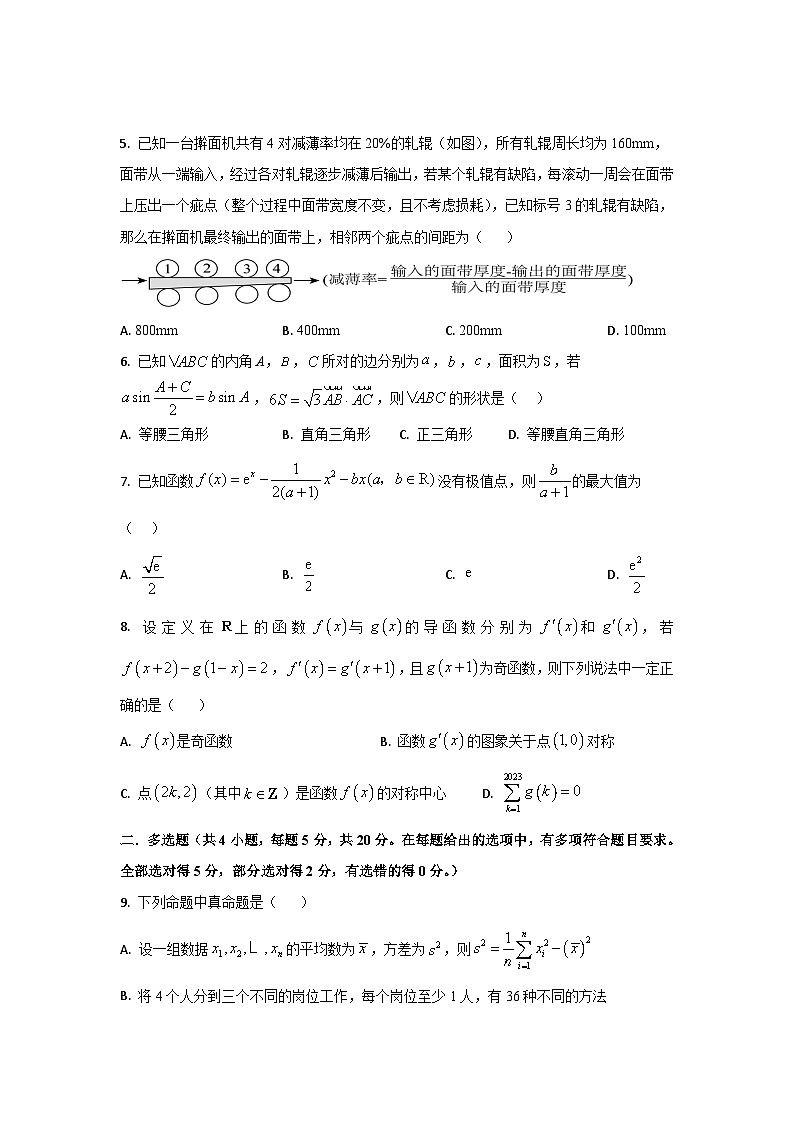 5. 已知一台擀面机共有 4 对减薄率均在 20%的轧辊（如图），所有轧辊周长均为 160mm，
面带从一端输入，经过各对轧辊逐步减薄后输出，若某个轧辊有缺陷，每滚动一周会在面带
上压出一个疵点（整个过程中面带宽度不变，且不考虑损耗），已知标号 3 的轧辊有缺陷，
那么在擀面机最终输出的面带上，相邻两个疵点的间距为（ ）
① ② ③ ④ (减薄率=输入的面带厚度-输出的面带厚度/输入的面带厚度)
A. 800mm B. 400mm C. 200mm D. 100mm
6. 已知 \/ABC 的内角 A，B，C 所对的边分别为 a，b，c，面积为 S，若
a sin (A+C)/2 = b sin A，6S = √3 AB · AC，则 \/ABC 的形状是（ ）
A. 等腰三角形 B. 直角三角形 C. 正三角形 D. 等腰直角三角形
7. 已知函数 f(x) = eˣ − 1/(2(a+1)) x² − bx(a，b∈R) 没有极值点，则 b/(a+1) 的最大值为
（ ）
A. √e/2 B. e/2 C. e D. e²/2
8. 设定义在 R 上的函数 f(x) 与 g(x) 的导函数分别为 f′(x) 和 g′(x)，若
f(x+2) − g(1−x) = 2，f′(x) = g′(x+1)，且 g(x+1) 为奇函数，则下列说法中一定正
确的是（ ）
A. f(x) 是奇函数 B. 函数 g′(x) 的图象关于点 (1,0) 对称
C. 点 (2k,2)（其中 k∈Z）是函数 f(x) 的对称中心 D. ∑_{k=1}^{2023} g(k) = 0
二．多选题（共 4 小题，每题 5 分，共 20 分。在每题给出的选项中，有多项符合题目要求。
全部选对得 5 分，部分选对得 2 分，有选错的得 0 分。）
9. 下列命题中真命题是（ ）
A. 设一组数据 x₁,x₂,∟,xₙ 的平均数为 x̄，方差为 s²，则 s² = 1/n ∑_{i=1}^{n} xᵢ² − (x̄)²
B. 将 4 个人分到三个不同的岗位工作，每个岗位至少 1 人，有 36 种不同的方法